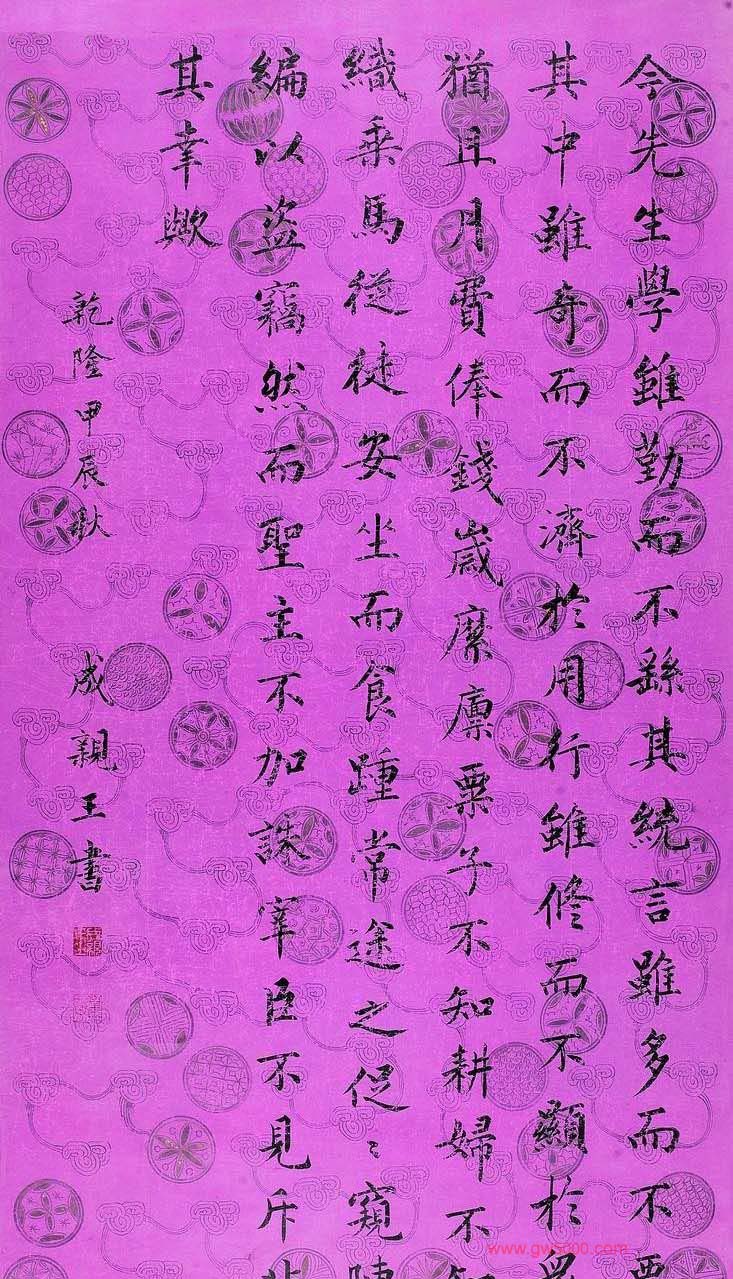 今先生學雖勤而不繇其統言雖多而不要
其中雖奇而不濟於用行雖修而不顯於眾
猶且月費俸錢歲縻廩粟子不知耕婦不知
織乘馬從徒安坐而食踵常途之促〻窺陳
編以盜竊然而聖主不加誅宰臣不見斥
其幸歟
乾隆甲辰秋
成親王書
www.gw5000.com